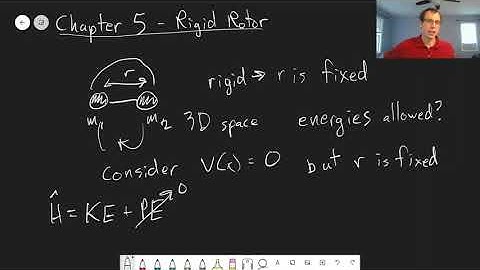 Chapter 5 - Rigid Rotor
r
rigid → r is fixed
m₁ m₂ 3D space energies allowed?
Consider V(r) = 0 but r is fixed
Ĥ = KE + PE → 0